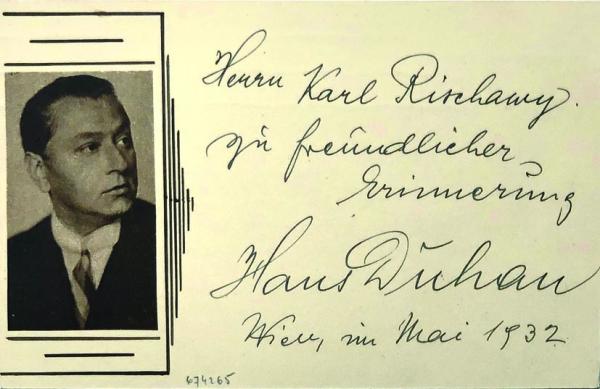 Herrn Karl Rischawy.
zu freundlicher
Erinnerung
Hans Duhan
Wien, im Mai 1932
674265